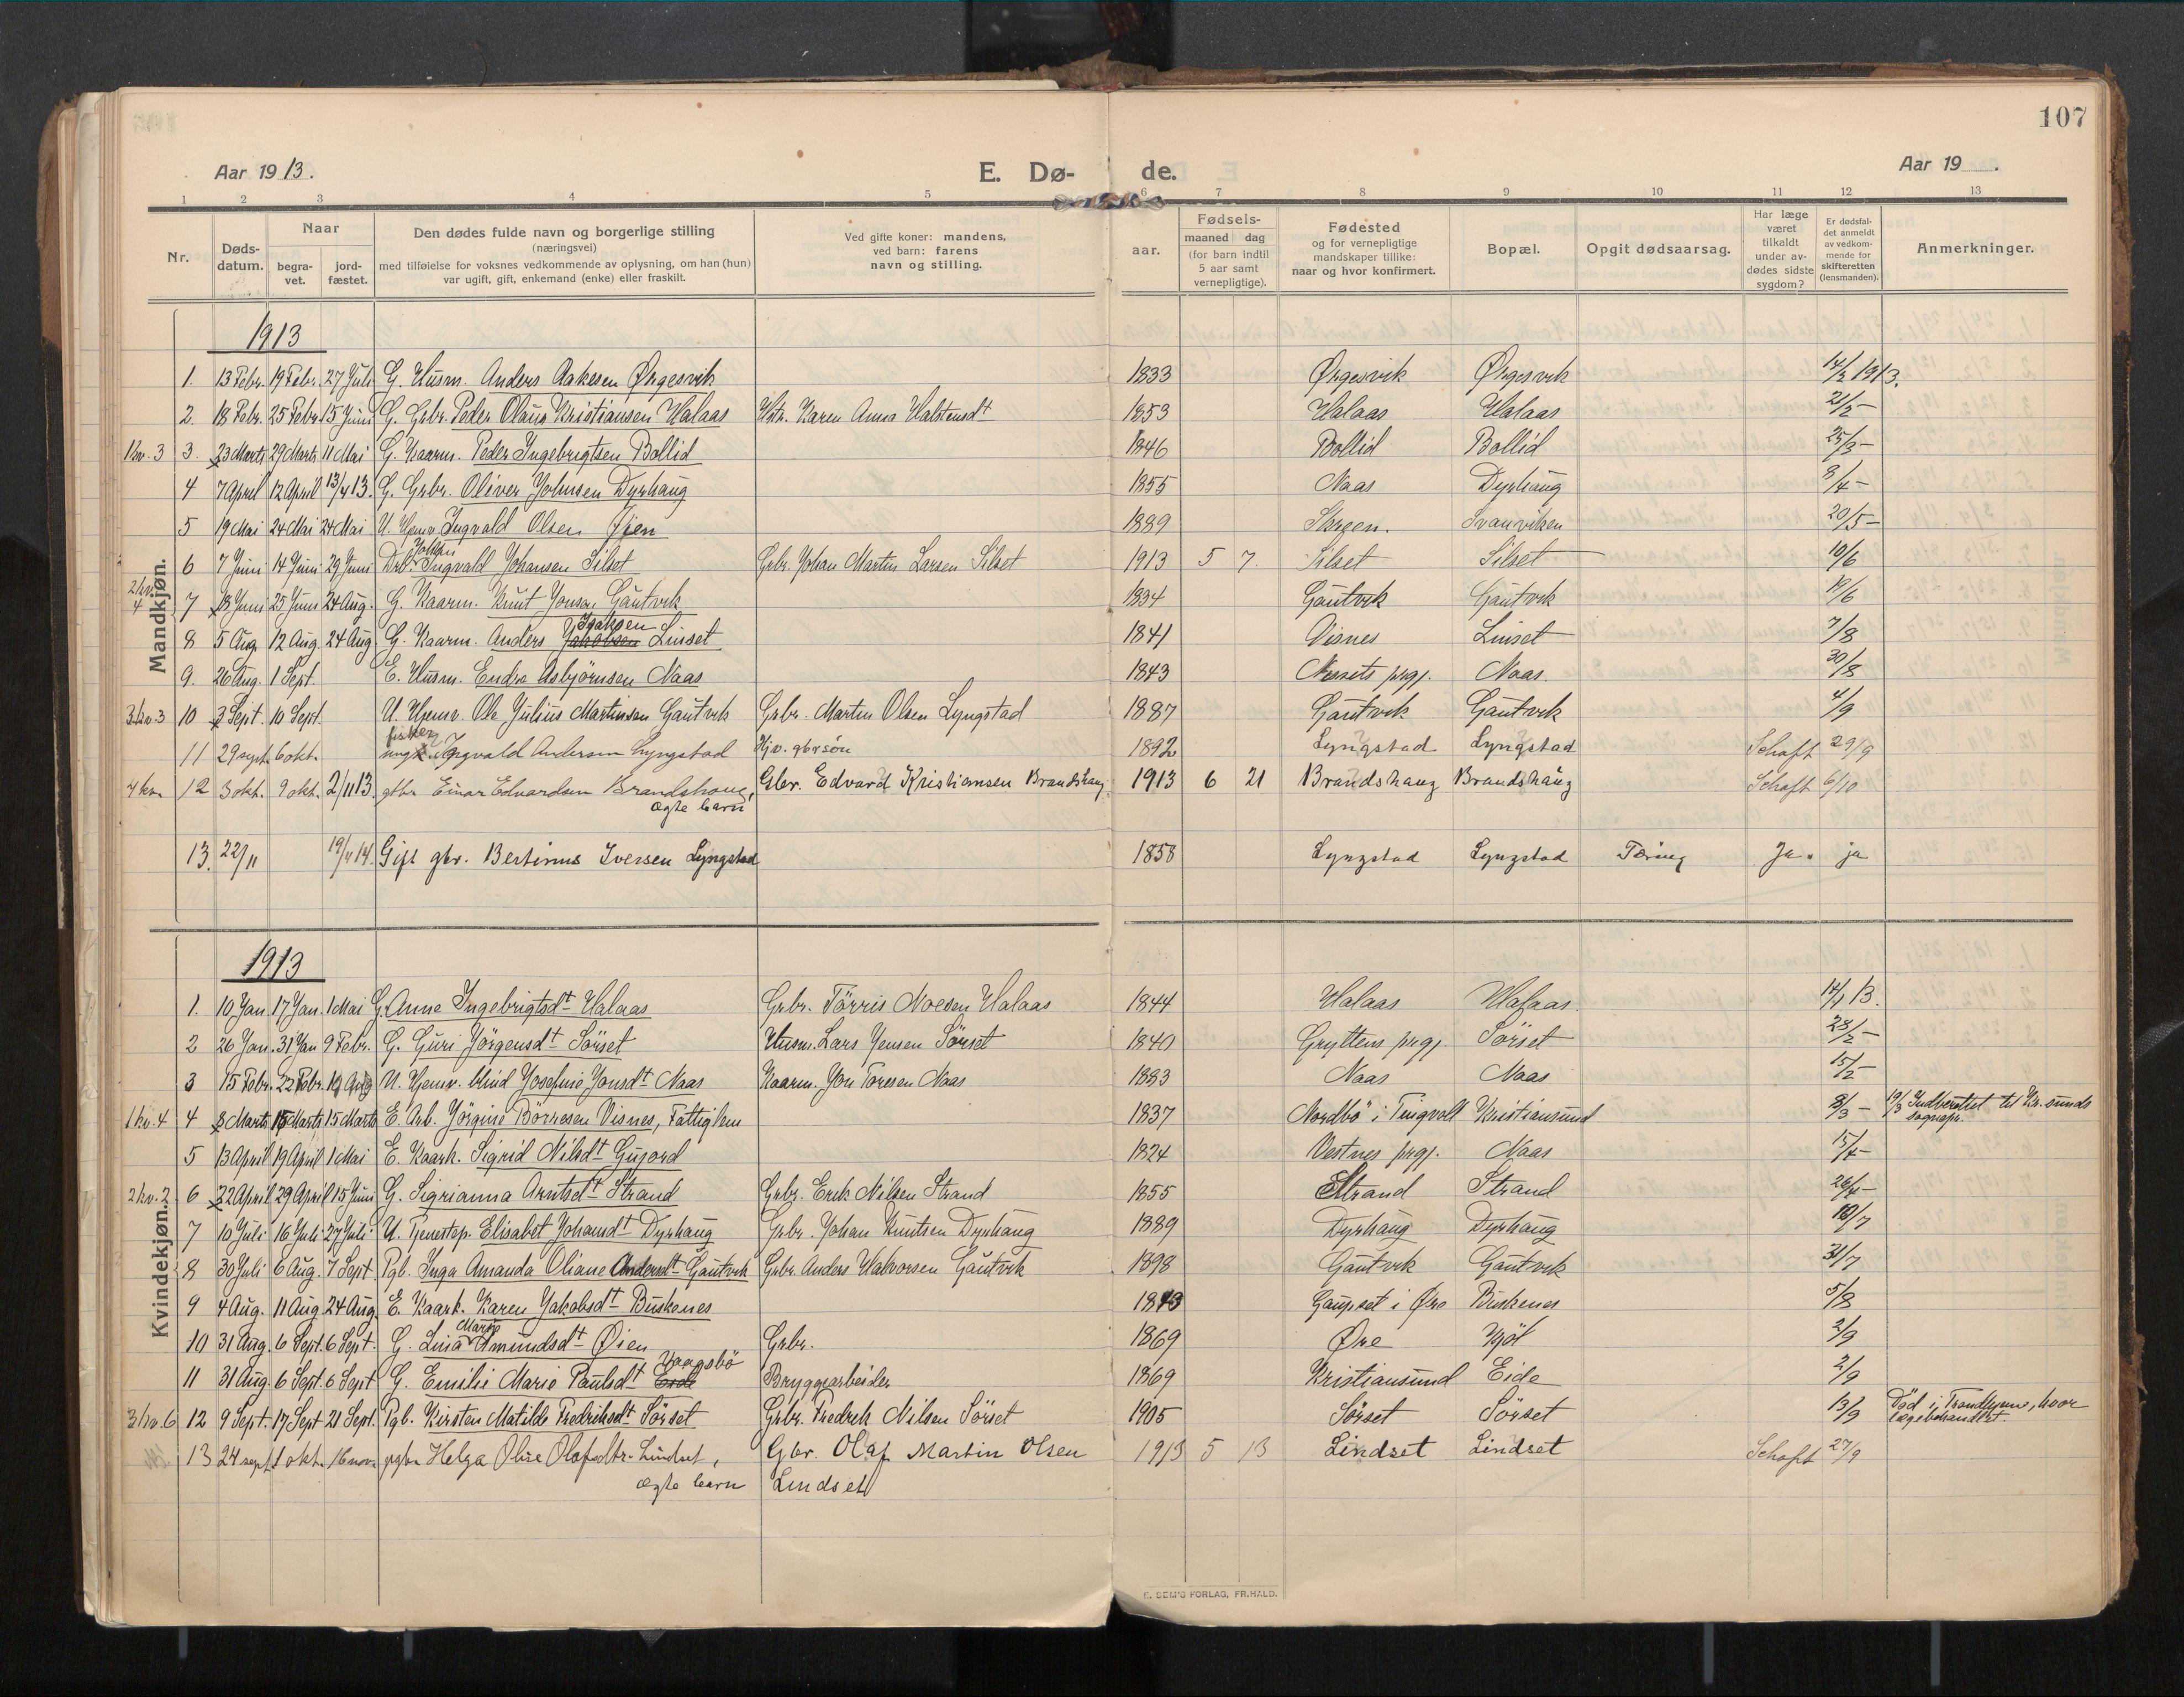 107
Aar 1913. E. Dø- de. Aar 19 .
1 2 3 4 5 6 7 8 9 10 11 12 13
Nr. Døds-datum. Naar begra-vet. jord-fæstet. Den dødes fulde navn og borgerlige stilling (næringsvei) med tilføielse for voksnes vedkommende av oplysning, om han (hun) var ugift, gift, enkemand (enke) eller fraskilt. Ved gifte koner: mandens, ved barn: farens navn og stilling. Fødsels- aar. maaned dag (for barn indtil 5 aar samt vernepligtige). Fødested og for vernepligtige mandskaper tillike: naar og hvor konfirmert. Bopæl. Opgit dødsaarsag. Har læge været tilkaldt under av-dødes sidste sygdom? Er dødsfal-det anmeldt av vedkom-mende for skifteretten (lensmanden). Anmerkninger.
Mandkjøn.
1913
1. 13 Febr. 19 Febr. 27 Juli G. Husm. Anders Aakesen Ørgesvik 1833 Ørgesvik Ørgesvik 14/2 1913.
2. 18 Febr. 25 Febr. 15 Juni G. Grbr. Peder Olaus Kristiansen Halaas Hstr. Karen Anna Halstensdt 1853 Halaas Halaas 21/2 -
1 kv. 3 3. 23 Marts 29 Marts 11 Mai G. Kaarm. Peder Ingebrigtsen Bollid 1846 Bollid Bollid 25/3 -
4 7 April 12 April 13/4 13. G. Grbr. Oliver Johnsen Dyrhaug 1855 Naas Dyrhaug 8/4 -
5 19 Mai 24 Mai 24 Mai U. Hjemv. Ingvald Olsen Øien 1889 Skreen. Svanviken 20/5 -
6 7 Juni 14 Juni 29 Juni Ingvald Johansen Silset Grbr. Johan Martin Larsen Silset 1913 5 7. Silset Silset 10/6
2 kv. 4 7 18 Juni 25 Juni 24 Aug. G. Kaarm. Knut Jonsen Gautvik 1834 Gautvik Gautvik 19/6
8 5 Aug. 12 Aug. 24 Aug G. Kaarm. Anders Jakobsen Isaksen Linset 1841 Visnes Linset 7/8
9. 26 Aug. 1 Sept. E. Husm. Endre Asbjörnsen Naas 1843 Nessets prgj. Naas. 30/8
3 kv. 3 10 3 Sept. 10 Sept. U. Hjemv. Ole Julius Martinsen Gautvik Grbr. Martin Olsen Lyngstad 1887 Gautvik Gautvik 4/9
11 29 sept. 6 okt. fisker Ingvald Andersen Lyngstad Hjv. gbrsøn 1892 Lyngstad Lyngstad Schaft 29/9
4 kv. 12 3 okt. 9 okt. 2/11 13. gtbr Einar Edvardsen Brandshaug, Gbr. Edvard Kristiansen Brandshaug 1913 6 21 Brandshaug Brandshaug Schaft 6/10
ægte barn
13. 22/11 19/4 14. Gift gbr. Bertinus Iversen Lyngstad 1858 Lyngstad Lyngstad Tæring Ja. ja
Kvindekjøn.
1913
1. 10 Jan. 17 Jan. 1 Mai G. Anne Ingebrigtsdt Halaas Grbr. Törris Noesen Halaas 1844 Halaas Halaas. 14/1 13.
2 26 Jan. 31 Jan 9 Febr. G. Guri Jörgensdt Sörset Husm. Lars Jensen Sörset 1840 Gryttens prgj. Sörset 28/2 -
3 15 Febr. 22 Febr. 10 Aug U. Hjemv. blind Josefine Jonsdt Naas Kaarm. Jon Toresen Naas 1883 Naas Naas 15/2 -
1 kv. 4 4 8 Marts 15 Marts 15 Marts E. Arb. Jörgine Börresen Visnes, Fattighm 1837 Nordbö i Tingvoll Kristiansund 8/3 - 19/3 Indberettet til Kr.sunds sognepr.
5 13 April 19 April 1 Mai E. Kaark. Sigrid Nilsdt Gujord 1824 Vestnes prgj. Naas 15/4 -
2 kv. 2 6 22 April 29 April 15 Juni G. Sigrianna Arntsdt Strand Grbr. Erik Nilsen Strand 1855 Strand Strand 26/4 -
7 10 Juli 16 Juli 27 Juli U. Tjenstep. Elisabet Johansdt Dyrhaug Grbr. Johan Knutsen Dyrhaug 1889 Dyrhaug Dyrhaug 10/7
8 30 Juli 6 Aug. 7 Sept Pgb. Inga Amanda Oliane Andersdt Gautvik Grbr. Anders Halvorsen Gautvik 1898 Gautvik Gautvik 31/7
9 4 Aug. 11 Aug. 24 Aug. E. Kaark. Karen Jakobsdt Buskenes 1843 Gaupset i Øre Buskenes 5/8
10 31 Aug. 6 Sept. 6 Sept. G. Lina Marie Amundsdt Øien Grbr. 1869 Øre Hjöl 2/9
11 31 Aug. 6 Sept. 6 Sept G. Emilie Marie Paulsdt Eide Vaagsbö Bryggearbeider 1869 Kristiansund Eide 2/9
3 kv. 6 12 9 Sept. 17 Sept 21 Sept. Pgb. Kirsten Matilde Fredriksdt Sörset Grbr. Fredrik Nilsen Sörset 1905 Sörset Sörset 13/9 Död i Trondhjem, hvor lægebehandlet
13 24 sept. 1 okt. 16 nov. pgbr Helga Oline Olafsdtr. Lindset, Gbr. Olaf Martin Olsen 1913 5 13 Lindset Lindset Schaft 27/9
ægte barn Lindset
E. SEM'S FORLAG, FR.HALD.